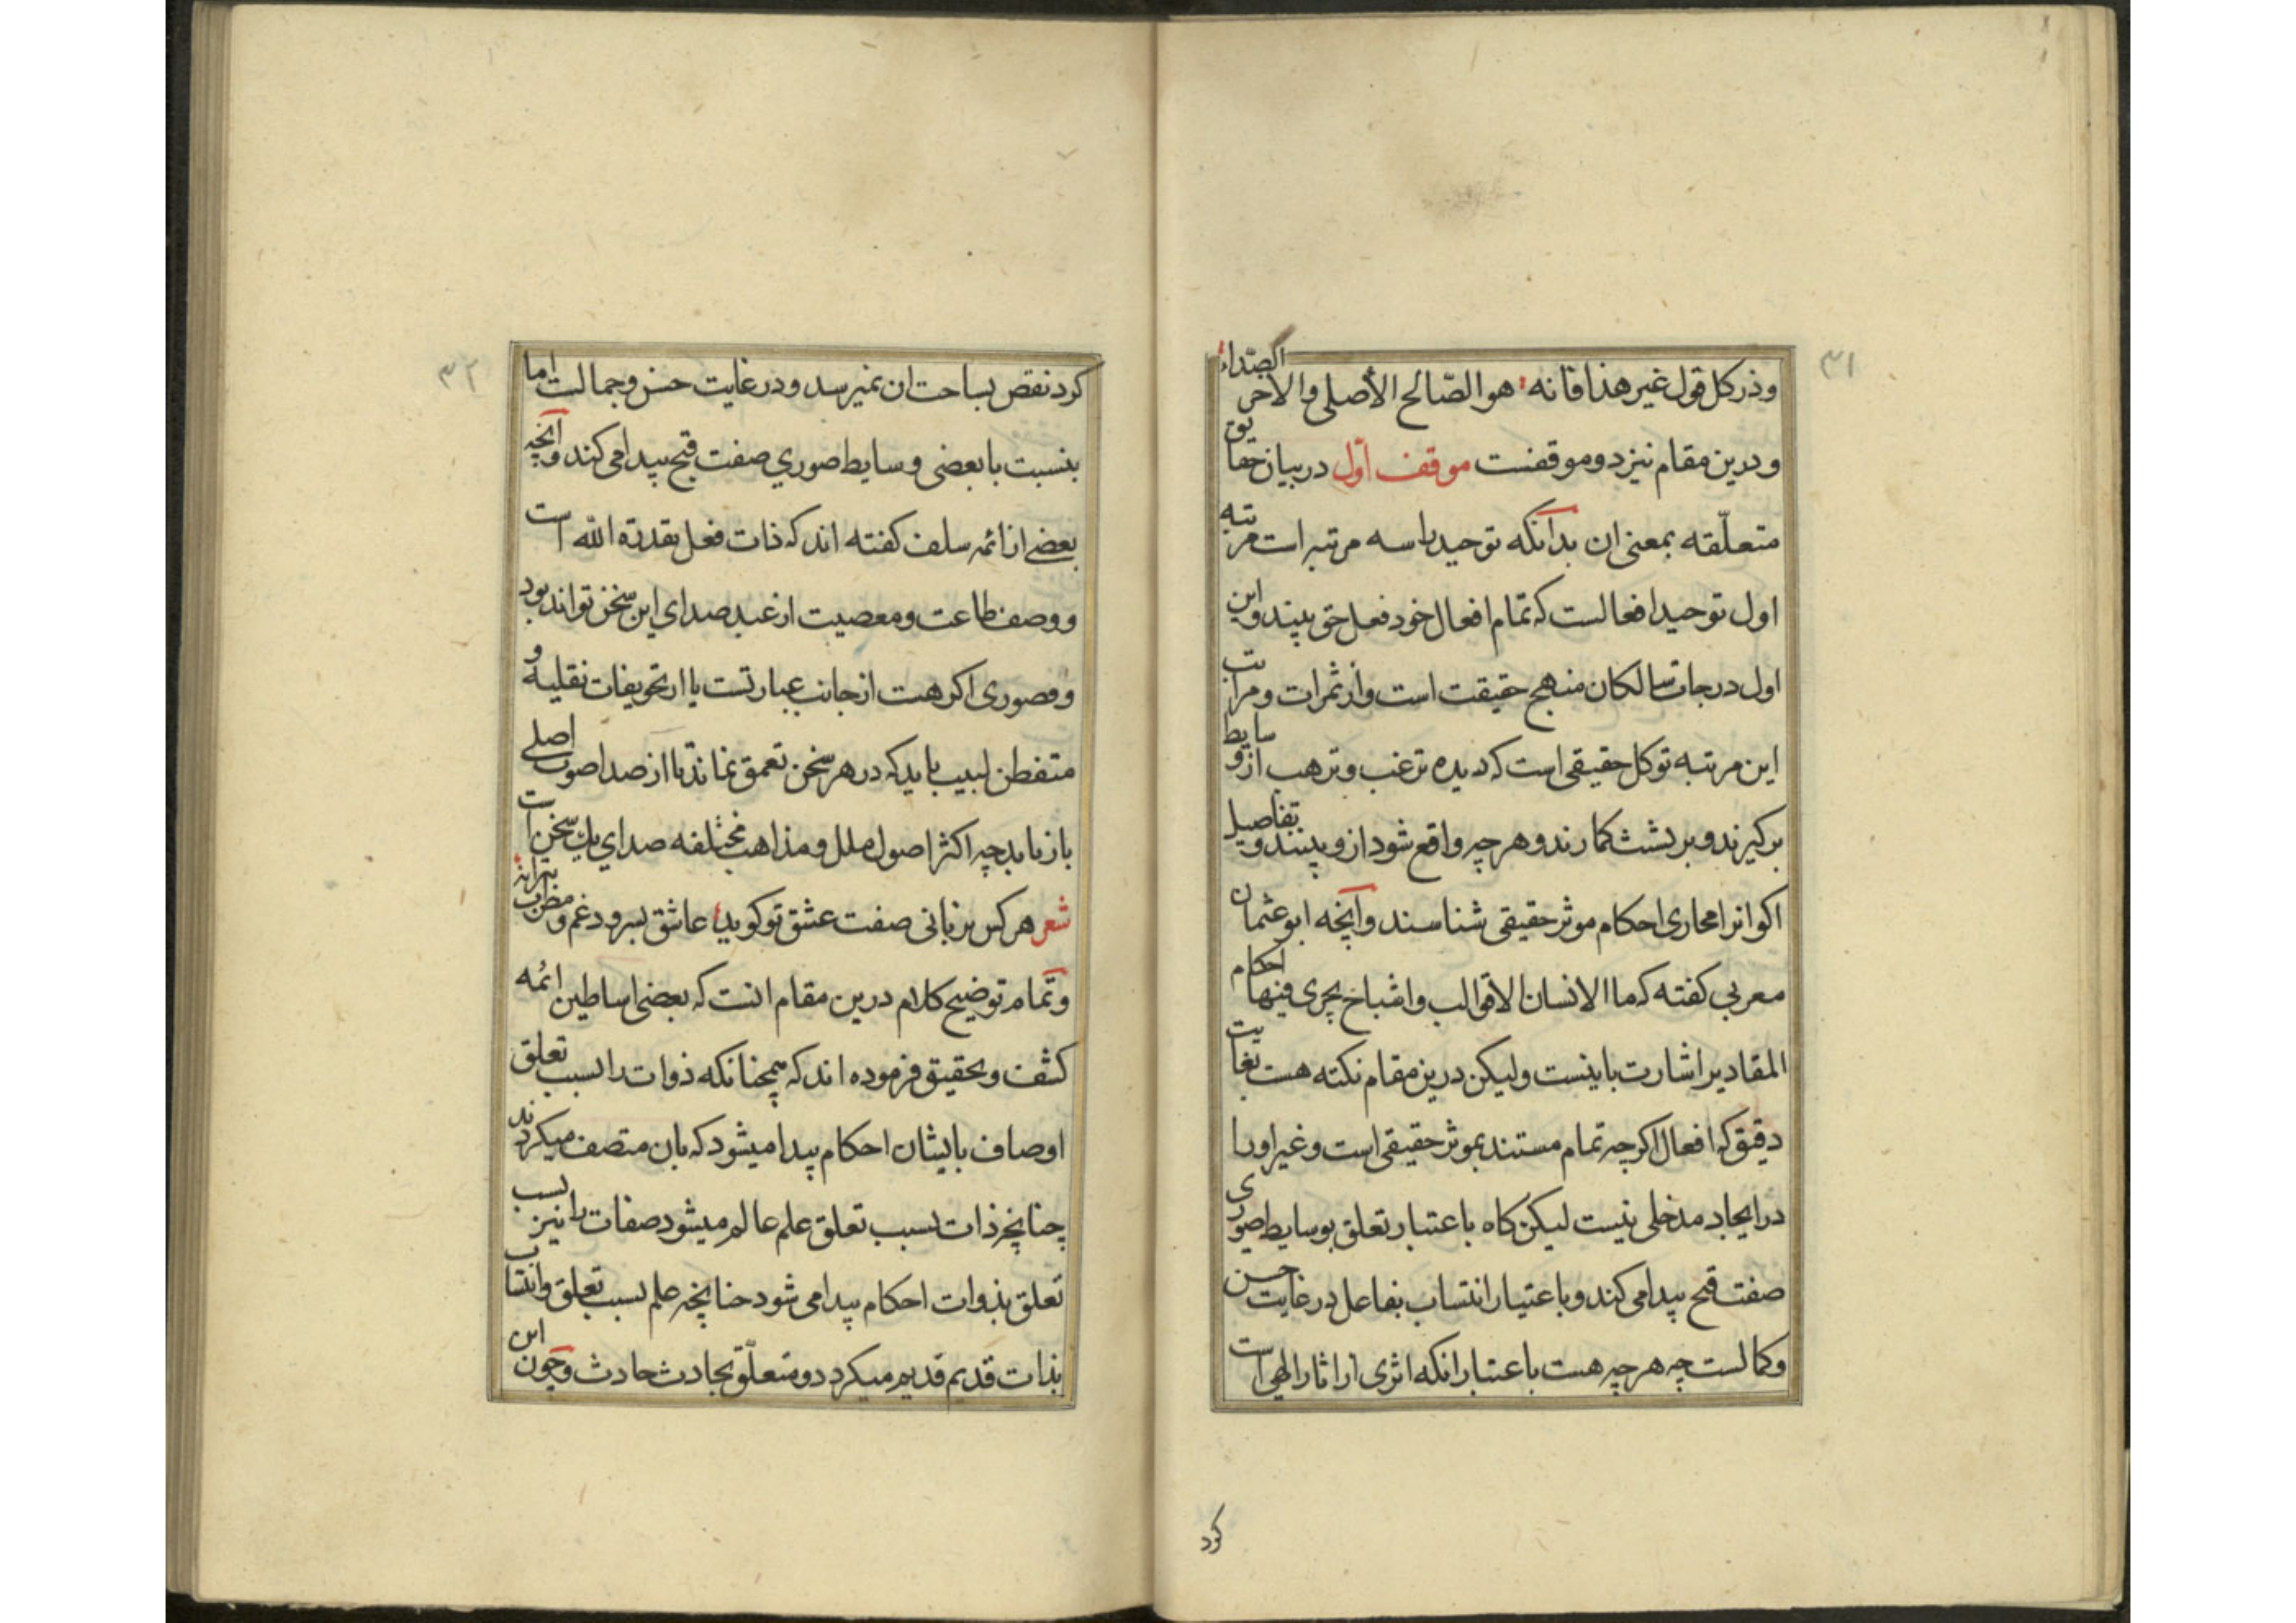 ۳۱
وذر کل قول غیر هذا فانه هو الصّالح الأصلی والاخر الصّداء
ودرین مقام نیز دو موقفست موقف اول در بیان حقایق
متعلّقه بمعنی ان بدانکه توحید را سه مرتبه است مرتبه
اول توحید افعالست که تمام افعال خود فعل حق بیند واین
اول درجات سالکان منهج حقیقت است واز ثمرات ومراتب
این مرتبه توکل حقیقی است که دیده ترغب وترهب از وسایط
برکیرند وبر بشت کمارند وهر چه واقع شود ازو بینند وتفاصیل
اکوانرا مجاری احکام موثر حقیقی شناسند وآنچه ابو عثمان
مغربی کفته که ما الانسان الا قوالب واشباح یجری فیها احکام
المقادیر اشارت باینست ولیکن درین مقام نکته هست بغایت
دقیق که افعال اکرچه تمام مستند بموثر حقیقی است وغیر اورا
در ایجاد مدخلی نیست لیکن کاه باعتبار تعلق بوسایط صوری
صفت قبح پیدا می کند وباعتبار انتساب بفاعل در غایت حسن
وکمالست چه هر چه هست باعتبار انکه اثری از اثار الهی است
کرد
۳۲
کرد نقص بساحت ان نمیرسد ودر غایت حسن وجمالست اما
بنسبت با بعضی وسایط صوري صفت قبح پیدا می کند وآنچه
بعضے از ائمه سلف کفته اند که ذات فعل بقدرة الله است
ووصف طاعت ومعصیت از عبد صدای این سخن تواند بود
وقصوری اکر هست از جانب عبارتست یا از تحویفات نقلیه و
متفطن لبیب باید که در هر سخن تعمق نماند تا از صدا صوت اصلے
باز یابد چه اکثر اصول ملل ومذاهب مختلفه صدای یك سخن است
شعر هر کس بزبانی صفت عشق تو کوید عاشق بسرود غم ومطرب بترانه
وتمام توضیح کلام درین مقام انست که بعضی اساطین ائمه
کشف وتحقیق فرموده اند که همچنانکه ذوات را بسبب تعلق
اوصاف بایشان احکام پیدا میشود که بان متصف میکردند
چنانچه ذات بسبب تعلق علم عالم میشود صفات را نیز بسبب
تعلق بذوات احکام پیدا می شود چنانچه علم بسبب تعلق وانتساب
بذات قدیم قدیم میکردد ومتعلّق بحادث حادث وچون این